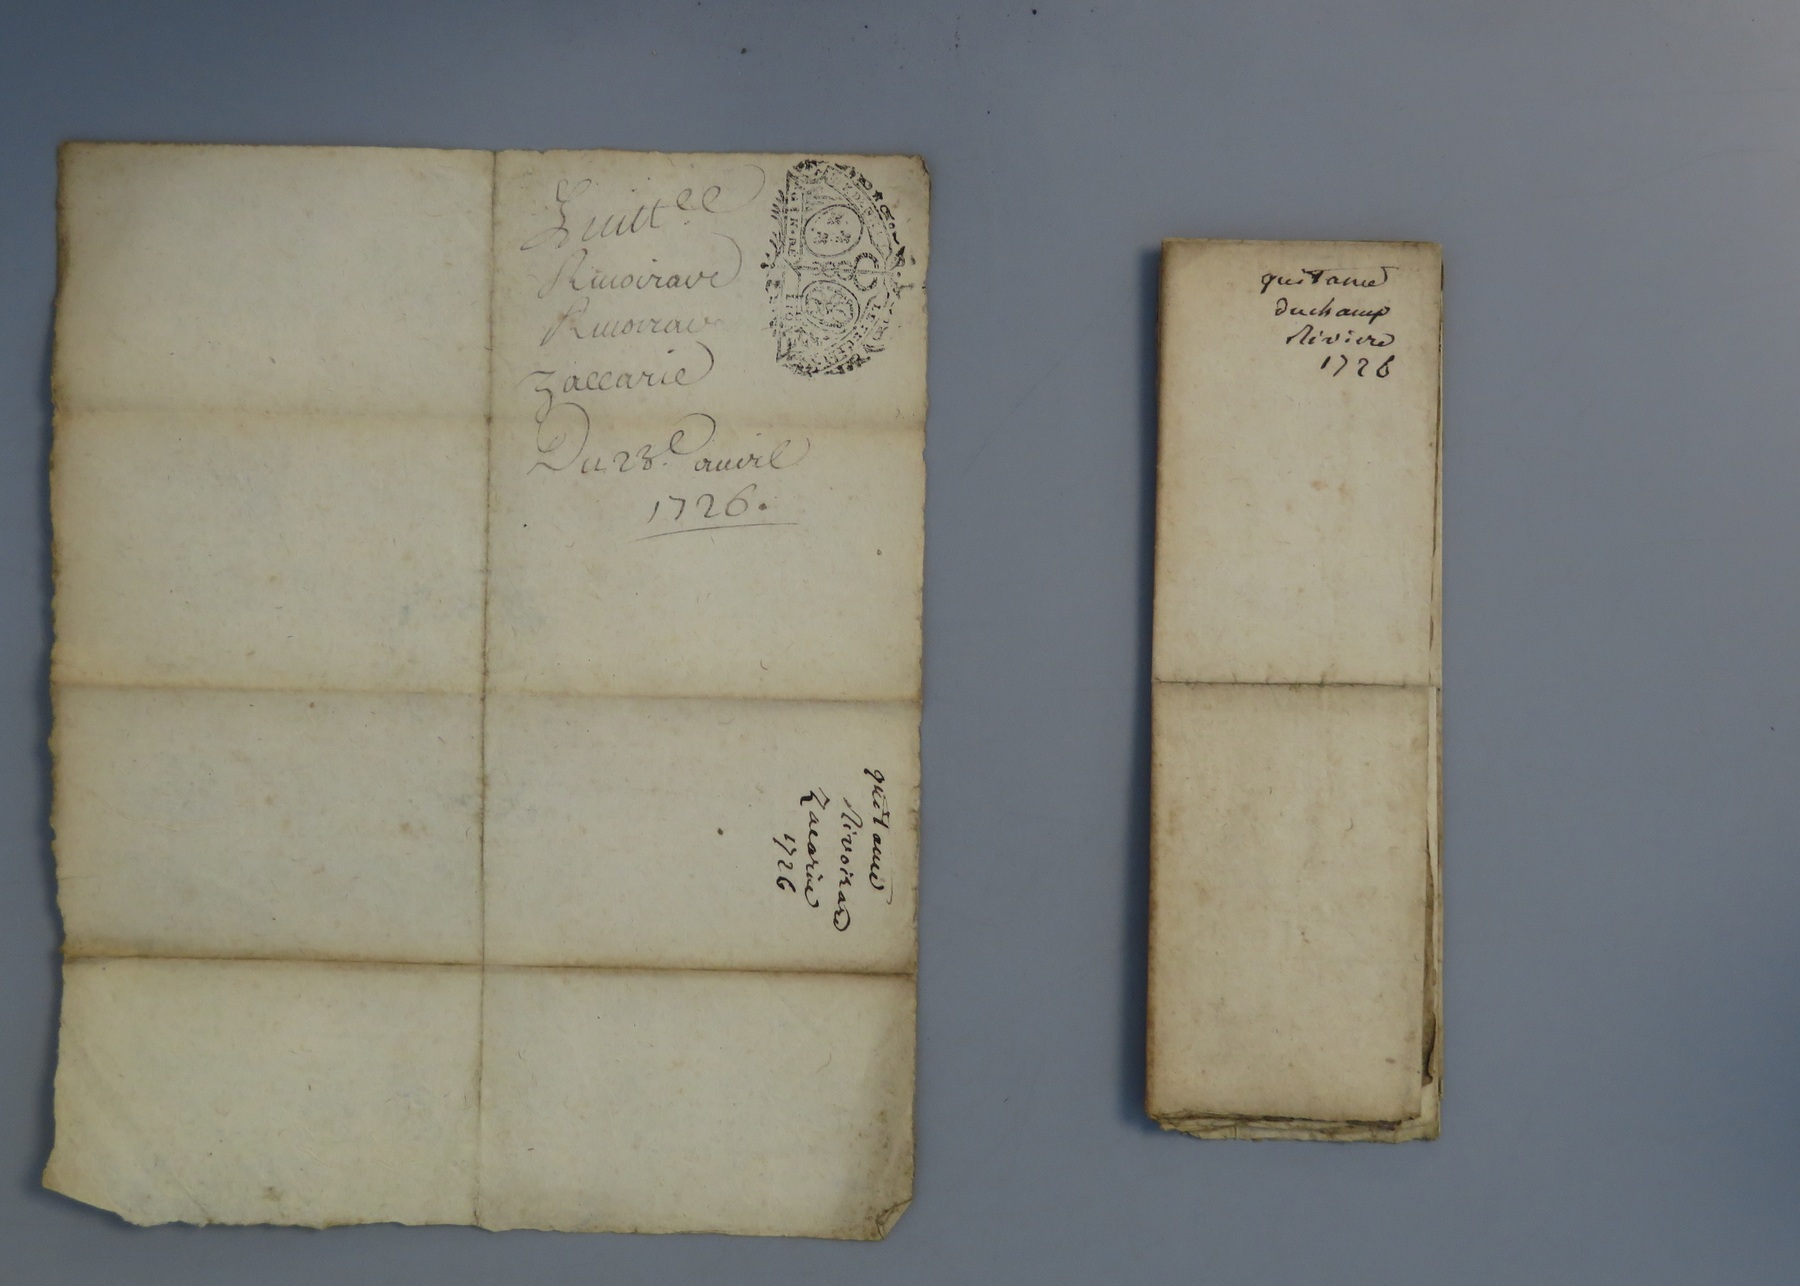 Quitt.ce
Rivoirard
Rivoirard
Zaccarie
Du 28.e avril
1726.
quitance
Rivoirard
Zacarie
1726
quitance
duchamp
Riviere
1726